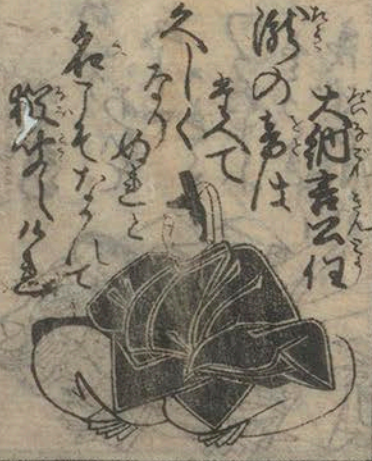 大納言公任
瀧の音は
たえて
久しく
なりぬれと
名こそなかれて
猶聞えけれ